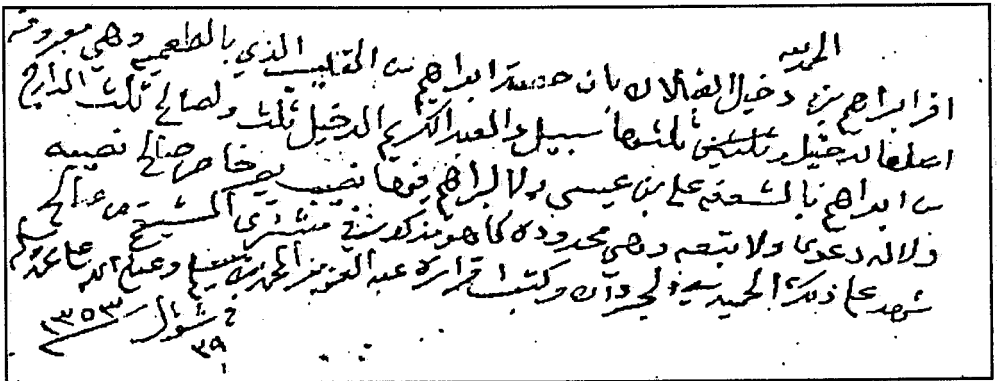 الحمد لله
اقر ابراهيم بن دخيل الفالان بان حصة ابراهيم من القليب الذي بالطعميه وهي معروفة
اصلها لدخيل وثلثين ثلثها سبيل والعبد الكريم الدخيل ثلث ولصالح ثلث الدارج
من ابراهيم بالشفعه على بن عيسى ولا لابراهيم فيها نصيب صالح نصيبه
ولا له دعوى ولا تبعه وهي محدوده كما هو مذكور في مشترى المشيقح من صالح
شهد على ذلك الحميد الجردان وكتب اقراره عبد العزيز المحمد بن سليم وصلى الله على محمد وسلم
في شوال ١٣٥٣
٣٩